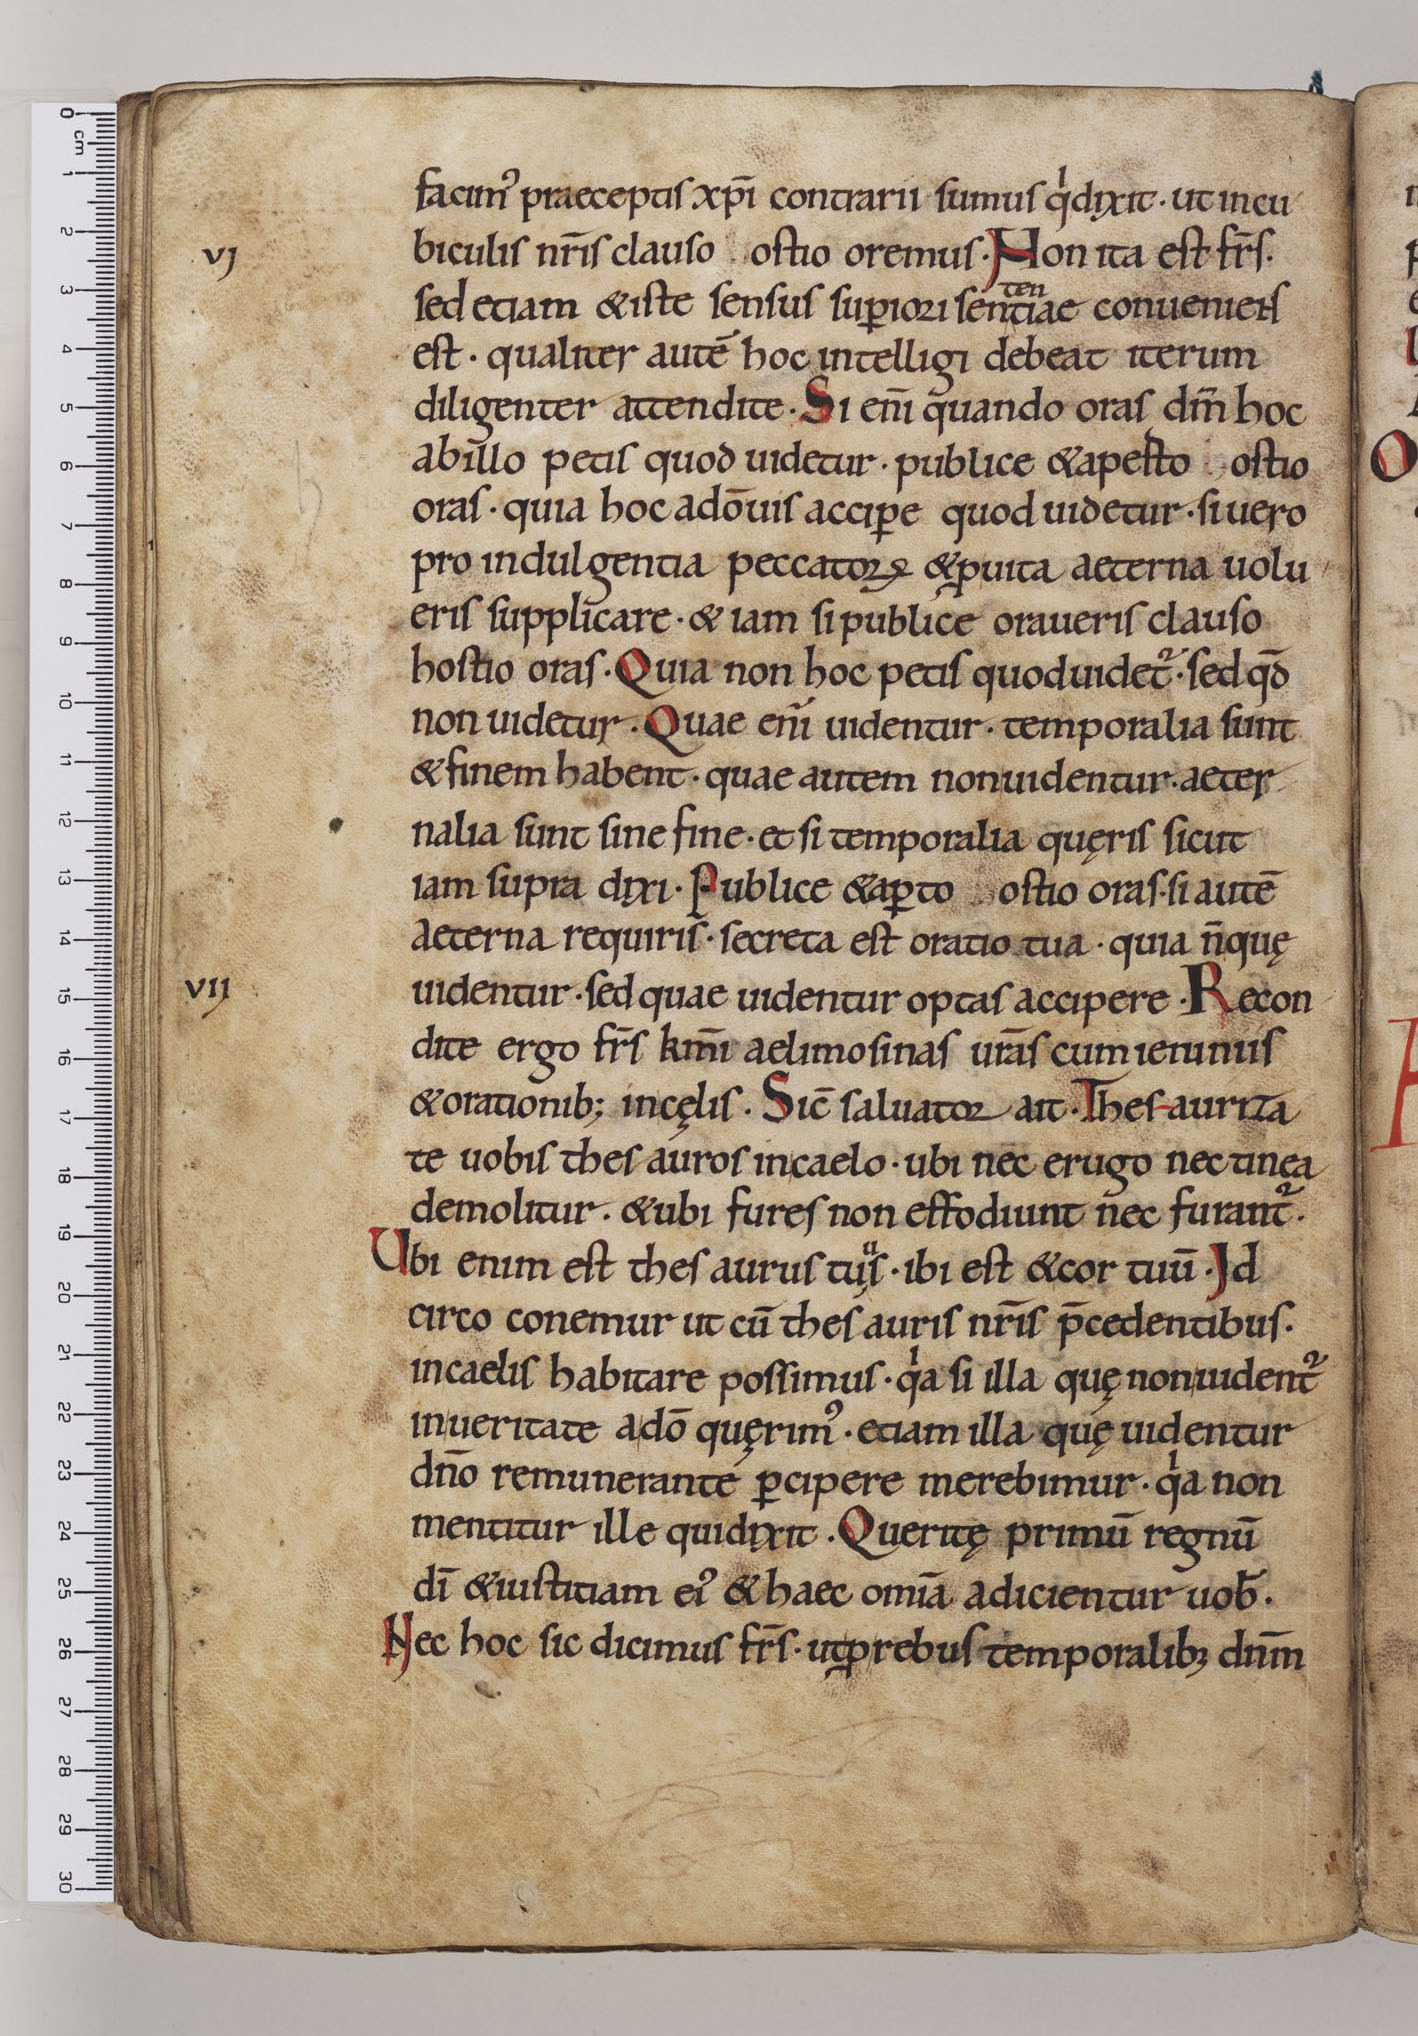 facim᾿ praeceptis xp̄i contrarii sumus qͥ dixit · ut in cu
vj
biculis nr̄is clauso ostio oremus · Non ita est fr̄s ·
sed etiam & iste sensus sup̱iori sententiae conueniens
est · qualiter autē hoc intelligi debeat iterum
diligenter attendite · Si eni̅ quando oras dm̄ hoc
ab illo petis quod uidetur · publice & apesto ostio
oras · quia hoc adō uis accip̱e quod uidetur · si uero
pro indulgentia peccatoꝝ & ꝓ uita aeterna uolu
eris supplicare · & iam si publice oraueris clauso
hostio oras · Quia non hoc petis quod uidet᷑ · sed qd̄
non uidetur · Quae eni̅ uidentur · temporalia sunt
& finem habent · quae autem non uidentur · aeter
nalia sunt sine fine · et si temporalia quęris sicut
iam supra dixi · Publice & ap̱to ostio oras · si autē
aeterna requiris · secreta est oratio tua · quia n̄ quę
vij
uidentur · sed quae uidentur optas accipere · Recon
dite ergo fr̄s km̄i aelimosinas ur̄as cum ieiuniis
& orationib; in cęlis · Sic̄ saluator ait · Thesauriza
te uobis thesauros in caelo · ubi nec erugo nec tinea
demolitur · & ubi fures non effodiunt nec furant᷑ ·
Ubi enim est thesaurus tuus · ibi est & cor tuū · Id
circo conemur ut cū thesauris nr̄is p̄cedentibus ·
in caelis habitare possimus · qͥa si illa quę non uident᷑
in ueritate adō quęrim᾿ · etiam illa quę uidentur
dn̄o remunerante p̱cipere merebimur · qͥa non
mentitur ille qui dixit · Queritę primū regnū
dī & iustitiam ei᾿ & haec omīa adicientur uob̄ ·
Nec hoc sic dicimus fr̄s · ut ꝓ rebus temporalibꝫ dnm̄